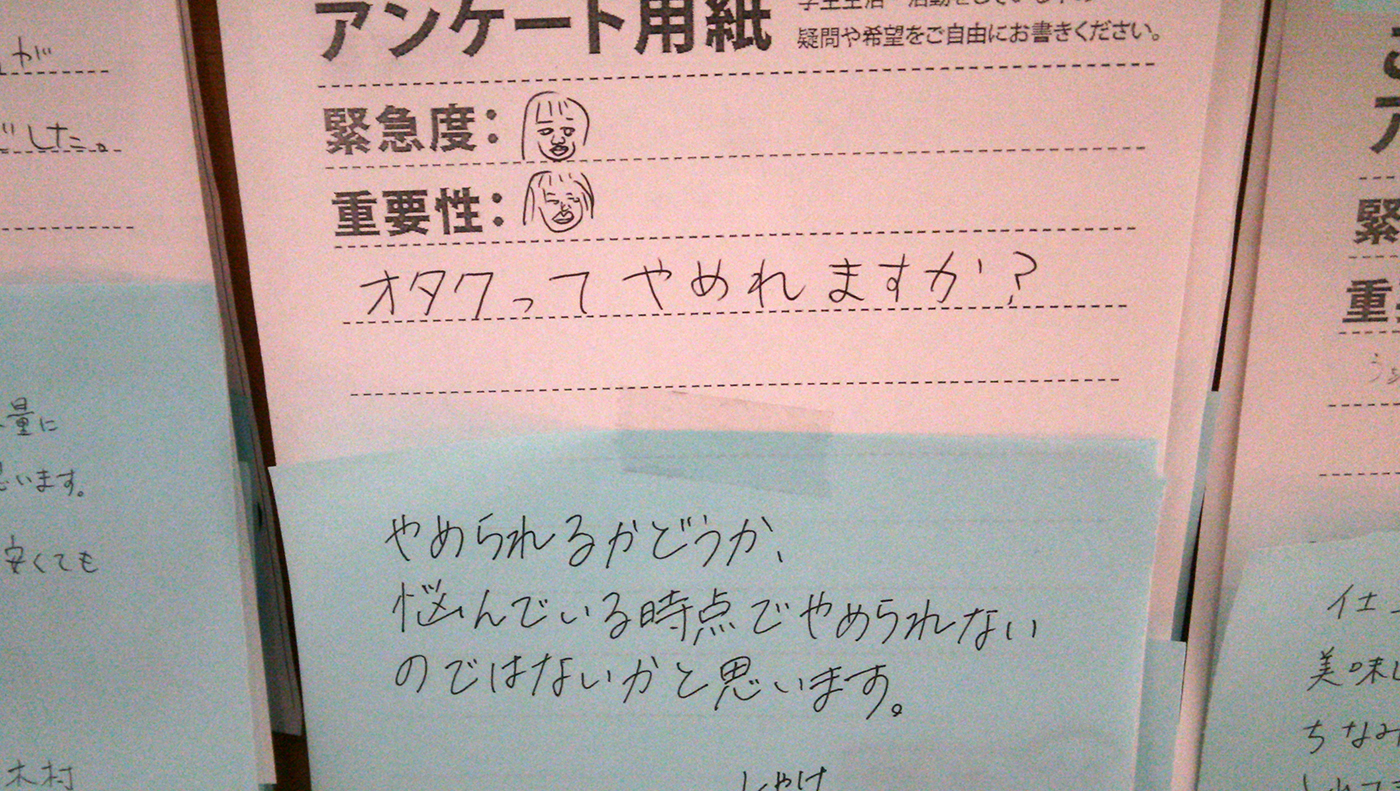 が
した。
量に
います。
安くても
木村
アンケート用紙
疑問や希望をご自由にお書きください。
緊急度：
重要性：
オタクって やめれますか？
やめられるかどうか、
悩んでいる時点でやめられない
のではないかと思います。
しゃけ
緊
重
美味し
ちなみ